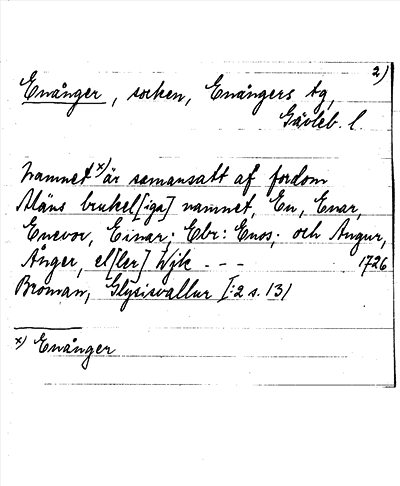 2)
Enånger, socken, Enångers tg,
Gävleb. l.
Namnet x) är samansatt af fordom
Mäns brukel[iga] namnet, En, Enar,
Enevor, Einar; Ebr: Enos; och Angur,
Ånger, el[ler] Wjk - - - 1726
Broman, Glysisvallur I:2 s. 131
x) Enånger